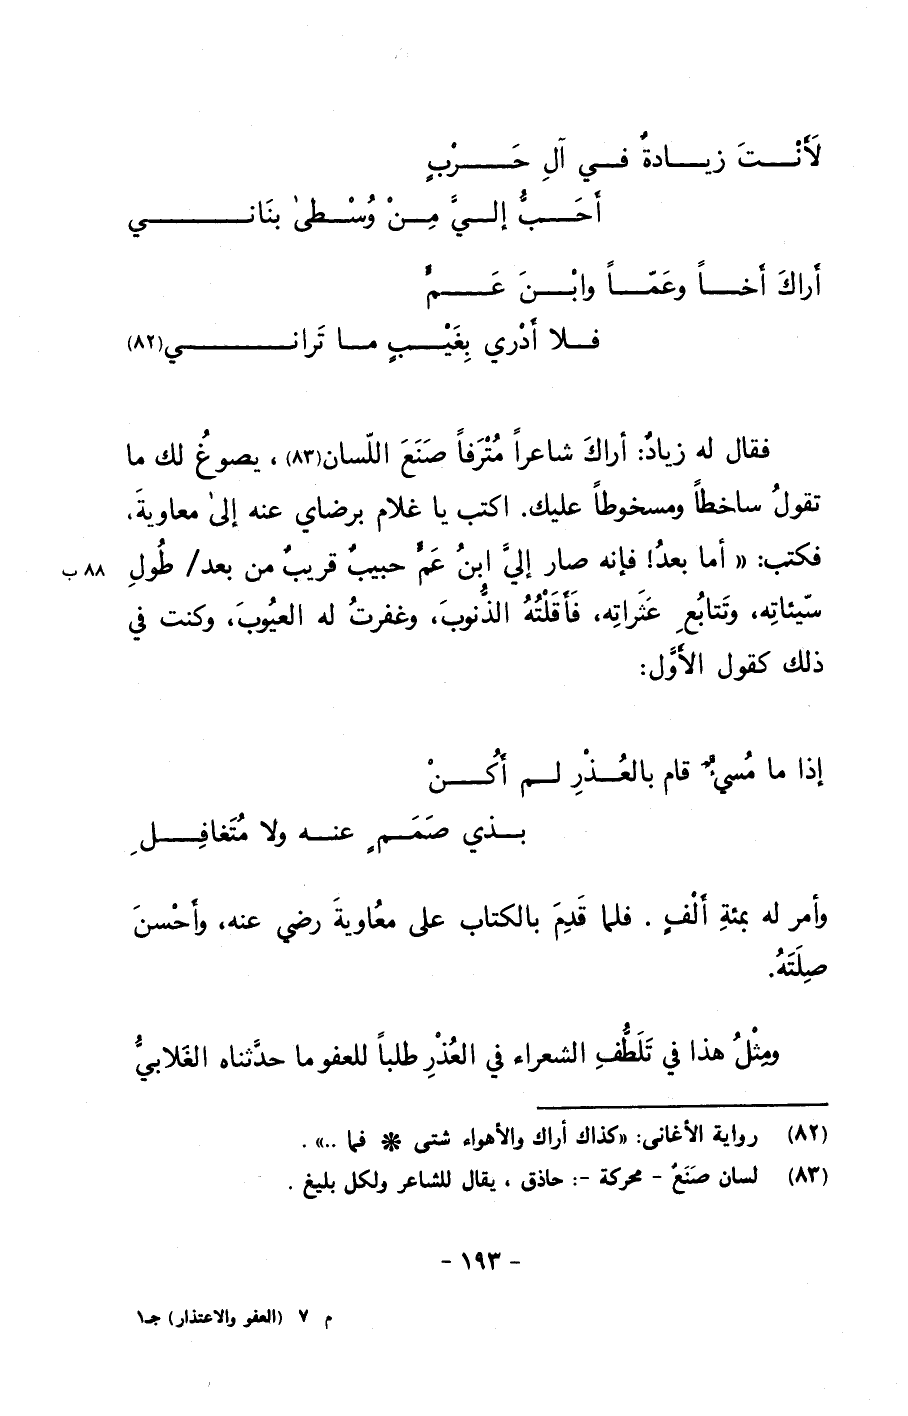 لَأَنْتَ زيادةٌ في آلِ حَرْبٍ
أَحَبُّ إليَّ مِنْ وُسْطىٰ بنَاني
أَراكَ أَخاً وعَمّاً وابْنَ عَمٍّ
فلا أَدْري بِغَيْبٍ ما تَراني(٨٢)
فقال له زيادٌ: أراكَ شاعراً مُتْرَفاً صَنَعَ اللّسان(٨٣) ، يصوغُ لك ما
تقولُ ساخطاً ومسخوطاً عليك. اكتب يا غلام برضاي عنه إلىٰ معاويةَ،
فكتب: « أما بعدُ! فإنه صار إليَّ ابنُ عَمٍّ حبيبٌ قريبٌ من بعد/ طُولِ ٨٨ ب
سّيئاتِه، وتَتابُعِ عَثَراتِه، فَأَقَلْتُهُ الذُّنوبَ، وغفرتُ له العيُوبَ، وكنت في
ذلك كقول الأوَّل:
إذا ما مُسيءٌ قام بالعُذْرِ لم أَكُنْ
بذي صَمَمٍ عنه ولا مُتَغافِلِ
وأمر له بمئةِ أَلْفٍ . فلما قَدِمَ بالكتاب على معُاويةَ رضي عنه، وأَحْسنَ
صِلَتَهُ.
ومِثْلُ هذا في تَلَطُّفِ الشعراء في العُذْرِ طلباً للعفو ما حدَّثناه الغَلابيُّ
(٨٢) رواية الأغاني: «كذاك أراك والأهواء شتى * فما ..» .
(٨٣) لسان صَنَعٌ - محركة -: حاذق ، يقال للشاعر ولكل بليغ .
- ١٩٣ -
م ٧ (العفو والاعتذار) جـ١